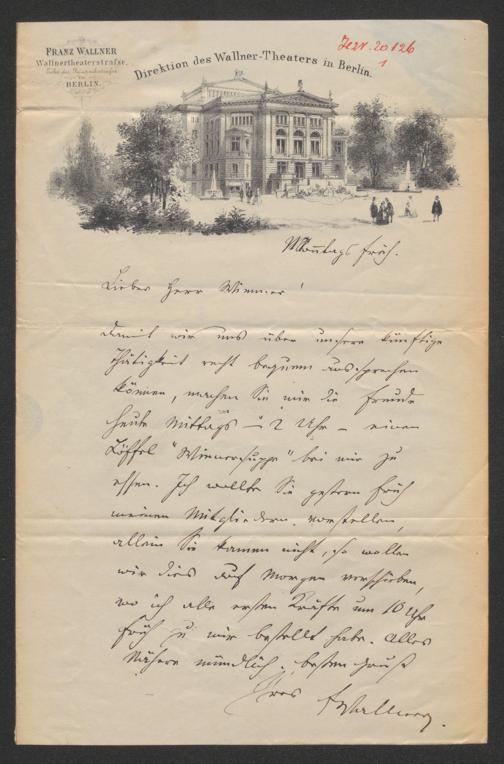 FRANZ WALLNER
Wallnertheaterstraße,
BERLIN.
Direktion des Wallner-Theaters in Berlin.
1
Montags früh.
Lieber Herr Wimmer!
damit wir uns über unsere künftige
Thätigkeit recht bequem aussprechen
können, machen Sie mir die Freude
heute Mittags 2 Uhr – einen
Löffel "Wienersuppe" bei mir zu
essen. Ich wollte Sie gestern früh
meinen Mitgliedern vorstellen,
allein Sie kamen nicht, so wollen
wir dies auf Morgen verschieben,
wo ich alle ersten Kräfte um 10 Uhr
früh zu mir bestellt habe. Alles
Nähere mündlich. besten Gruß
Ihres FWallner.